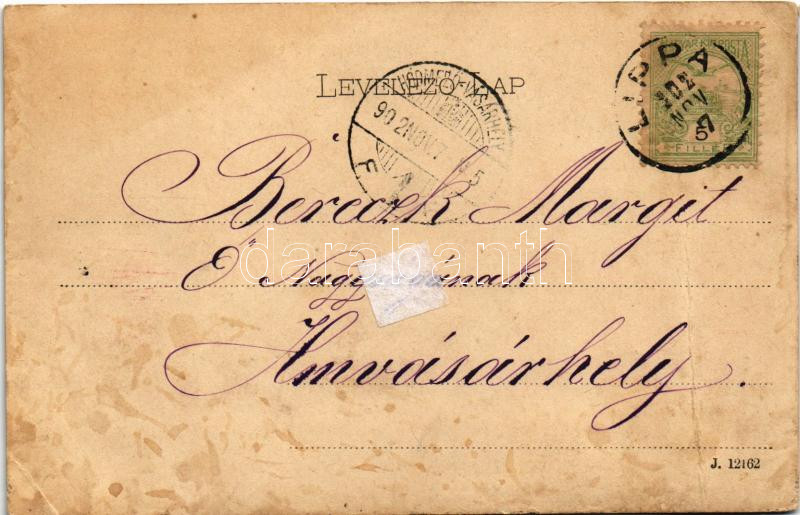 LEVELEZŐ-LAP
LIPPA
902 NOV 7
5
FILLÉR
HÓDMEZŐ-VÁSÁRHELY
902NOV.7
Bereczk Margit
Ő Nagyságának
Hmvásárhely.
darabanth
J. 12162